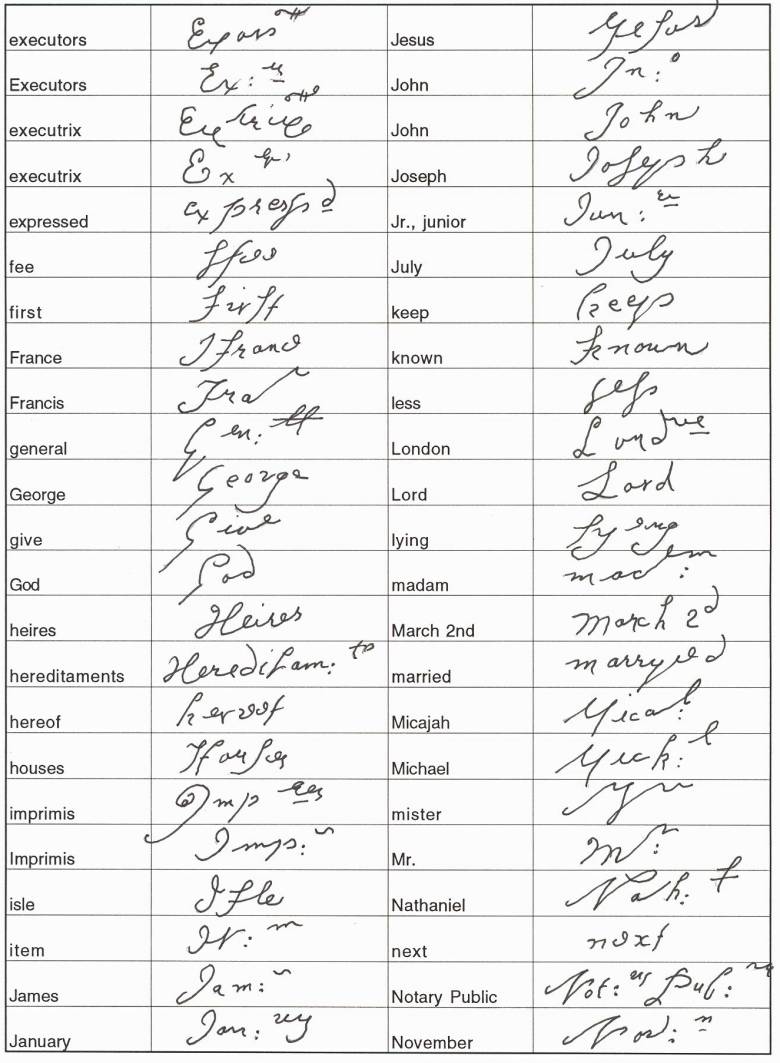 executors Jesus Jesus
Executors Ex: rs John Jn: o
executrix John John
executrix Joseph Joseph
expressed expressd Jr., junior Jun: er
fee ffee July July
first first keep keep
France ffrance known known
Francis Fra less less
general Gen: ll London
George George Lord Lord
give Give lying lyeng
God God madam mad: em
heires Heires March 2nd March 2d
hereditaments Hereditam: ts married marryed
hereof hereof Micajah Mica:
houses Houses Michael Mich: l
imprimis Imp mister Mr
Imprimis Imps: Mr. Mr:
isle Isle Nathaniel Nath: l
item It: m next next
James Jam: s Notary Public Not: ry Pub:
January Jan: ry November Nov: r